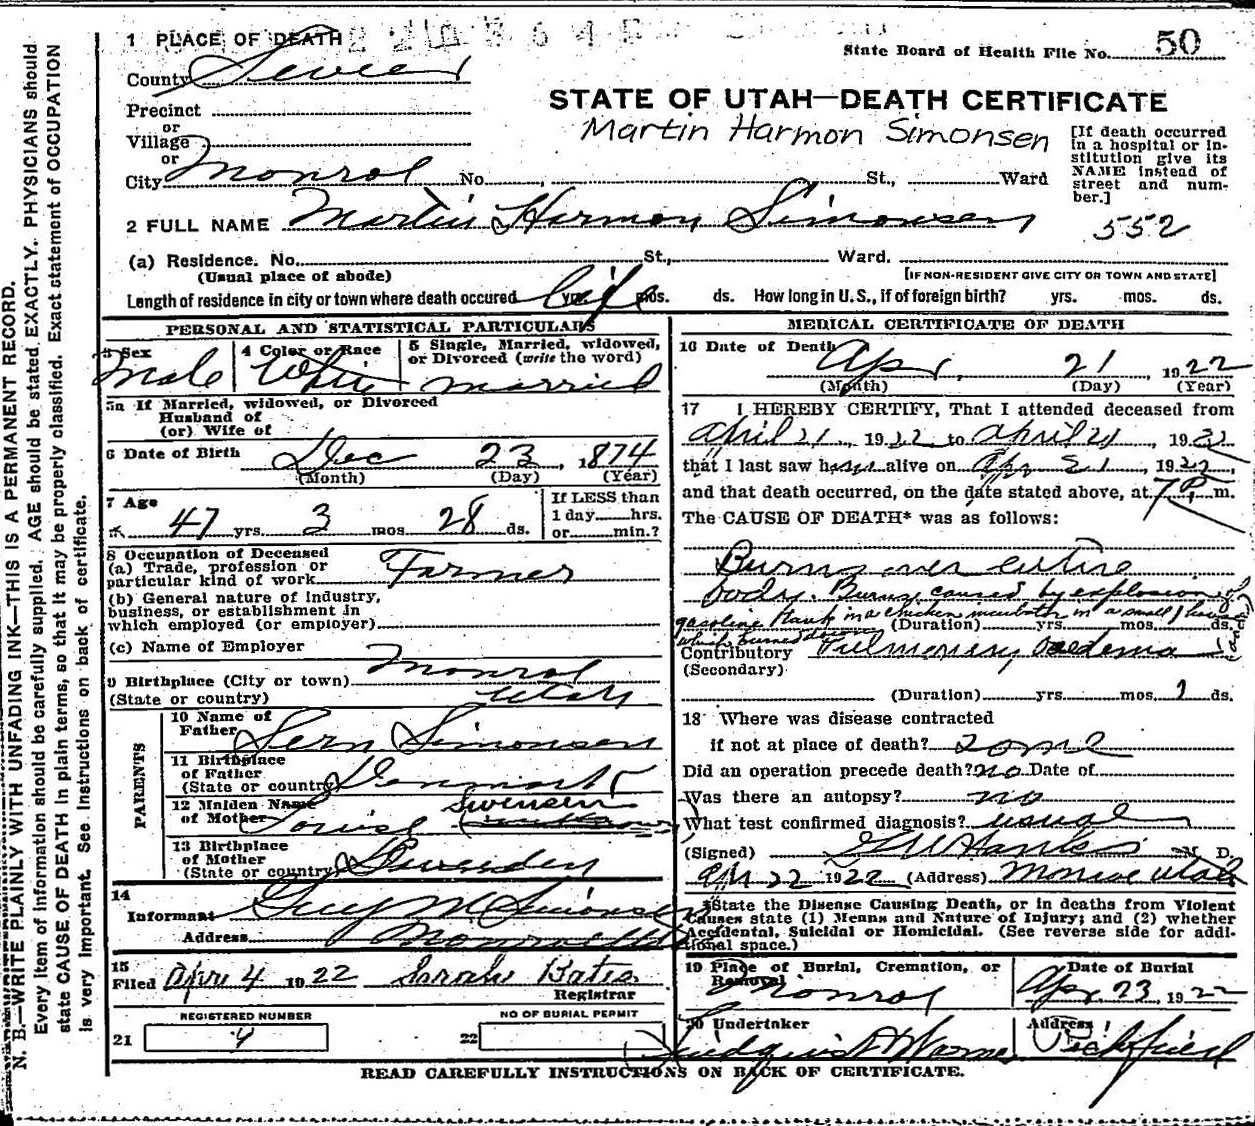 1 PLACE OF DEATH
State Board of Health File No. 50
County Sevier
STATE OF UTAH—DEATH CERTIFICATE
Precinct
or
Village
or
City Monroe No. , St., Ward
Martin Harmon Simonsen
[If death occurred
in a hospital or in-
stitution give its
NAME instead of
street and num-
ber.]
552
2 FULL NAME Martin Harmon Simonsen
(a) Residence. No. St., Ward.
(Usual place of abode)
[IF NON-RESIDENT GIVE CITY OR TOWN AND STATE]
Length of residence in city or town where death occured life yrs. mos. ds. How long in U. S., if of foreign birth? yrs. mos. ds.
PERSONAL AND STATISTICAL PARTICULARS
3 Sex
Male
4 Color or Race
White
5 Single, Married, widowed,
or Divorced (write the word)
married
5a If Married, widowed, or Divorced
Husband of
(or) Wife of
6 Date of Birth Dec 23, 1874
(Month) (Day) (Year)
7 Age
47 yrs. 3 mos. 28 ds.
If LESS than
1 day hrs.
or min.?
8 Occupation of Deceased
(a) Trade, profession or
particular kind of work Farmer
(b) General nature of industry,
business, or establishment in
which employed (or employer)
(c) Name of Employer
9 Birthplace (City or town) Monroe
(State or country) Utah
PARENTS
10 Name of
Father Sern Simonsen
11 Birthplace
of Father
(State or country) Denmark
12 Maiden Name
of Mother Louise Swensen
13 Birthplace
of Mother
(State or country) Sweeden
14
Informant Guy M Simonsen
Address Monroe Utah
15
Filed Apr 4 1922 Sarah Bates
Registrar
REGISTERED NUMBER
21 4
NO OF BURIAL PERMIT
22
MEDICAL CERTIFICATE OF DEATH
16 Date of Death Apr. 21 1922
(Month) (Day) (Year)
17 I HEREBY CERTIFY, That I attended deceased from
April 21, 1922 to April 21, 1922
that I last saw him alive on Apr 21, 1922,
and that death occurred, on the date stated above, at 7 P. m.
The CAUSE OF DEATH* was as follows:
Burns over entire
body. Burns caused by explosion of
gasoline tank in a chicken incubator in a small house
(Duration) yrs. mos. ds.
which burned down
Contributory Pulmonary Oedema
(Secondary)
(Duration) yrs. mos. 1 ds.
18 Where was disease contracted
if not at place of death?
Did an operation precede death? no Date of
Was there an autopsy? no
What test confirmed diagnosis? usual
(Signed) G W Hanks M. D.
Apr 22 1922 (Address) Monroe Utah
*State the Disease Causing Death, or in deaths from Violent
Causes state (1) Means and Nature of Injury; and (2) whether
Accidental, Suicidal or Homicidal. (See reverse side for addi-
tional space.)
19 Place of Burial, Cremation, or
Removal
Monroe
Date of Burial
Apr. 23, 1922
20 Undertaker
Address
Richfield
READ CAREFULLY INSTRUCTIONS ON BACK OF CERTIFICATE.
N. B.—WRITE PLAINLY WITH UNFADING INK—THIS IS A PERMANENT RECORD.
Every item of information should be carefully supplied. AGE should be stated EXACTLY. PHYSICIANS should
state CAUSE OF DEATH in plain terms, so that it may be properly classified. Exact statement of OCCUPATION
is very important. See Instructions on back of certificate.